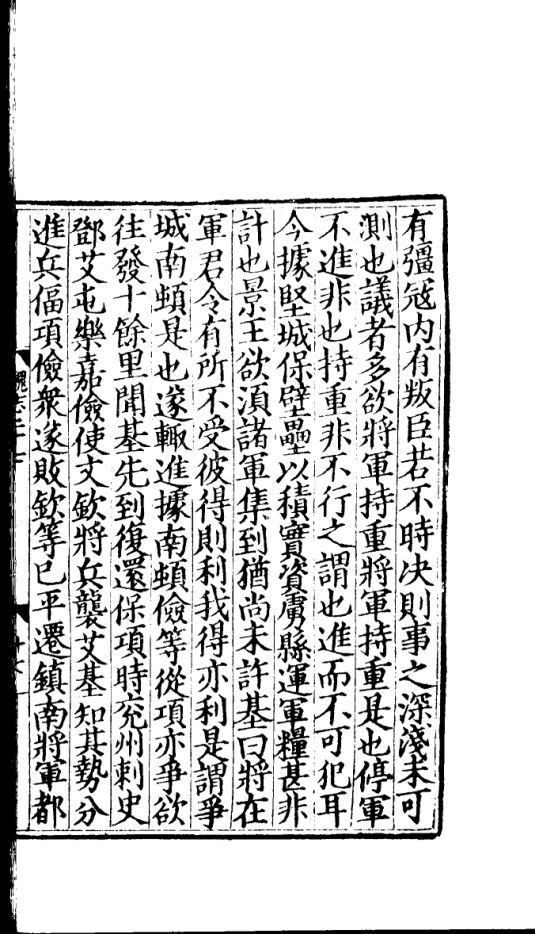 有彊冦内有叛臣若不時决則事之深淺未可
測也議者多欲將軍持重將軍持重是也停軍
不進非也持重非不行之謂也進而不可犯耳
今據堅城保壁壘以積實資虜縣運軍糧甚非
計也景王欲須諸軍集到猶尚未許基曰將在
軍君令有所不受彼得則利我得亦利是謂爭
城南頓是也遂輙進據南頓儉等從項亦爭欲
往發十餘里聞基先到復還保項時兖州刺史
鄧艾屯樂嘉儉使文欽將兵襲艾基知其勢分
進兵偪項儉衆遂敗欽等已平遷鎮南將軍都
魏志二十七